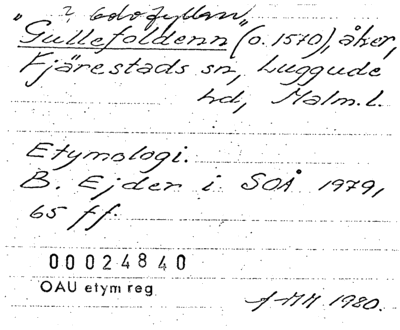 "Gullefoldenn" (o. 1570), åker,
Fjärestads sn, Luggude
hd, Malm. l.
Etymologi.
B. Ejder i SOÅ 1979,
65 ff.
00024840
OAU etym reg.
1980.